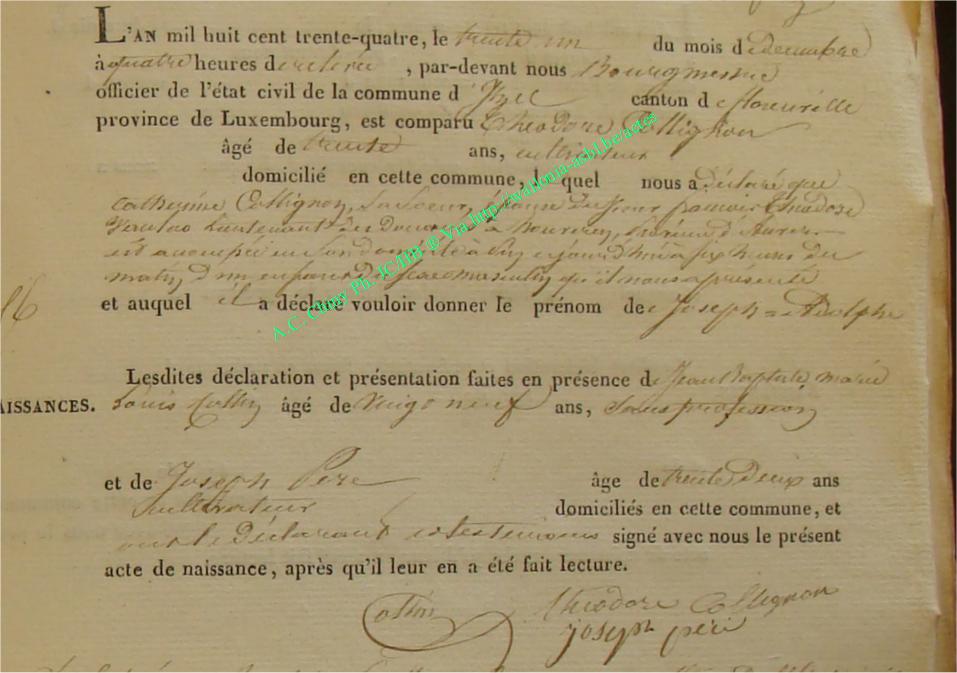 L'AN mil huit cent trente-quatre, le trente un du mois de decembre
à quatre heures de relevée, par-devant nous Bourgmestre
officier de l'état civil de la commune d'Izel canton de florenville
province de Luxembourg, est comparu Théodore Collignon
âgé de trente ans, cultivateur
domicilié en cette commune, lequel nous a déclaré que
catherine Collignon, sa soeur, épouse du Sieur françois Théodore
Lieutenant des Douanes à
est accouchée en son domicile à Izel cejourd'hui à six heures du
matin, d'un enfant du sexe masculin qu'il nous a présenté
16
et auquel il a déclaré vouloir donner le prénom de Joseph=Adolphe
Lesdites déclaration et présentation faites en présence de Jean Baptiste marie
AISSANCES. Louis âgé de vingt neuf ans, sans profession
et de Joseph Péré âgé de trente Deux ans
cultivateur domiciliés en cette commune, et
ont le Déclarant et les temoins signé avec nous le présent
acte de naissance, après qu'il leur en a été fait lecture.
théodore Collignon
joseph péré
A.C. Chiny Ph. JC/HB ® Via http://wallonia-asbl.be/actes